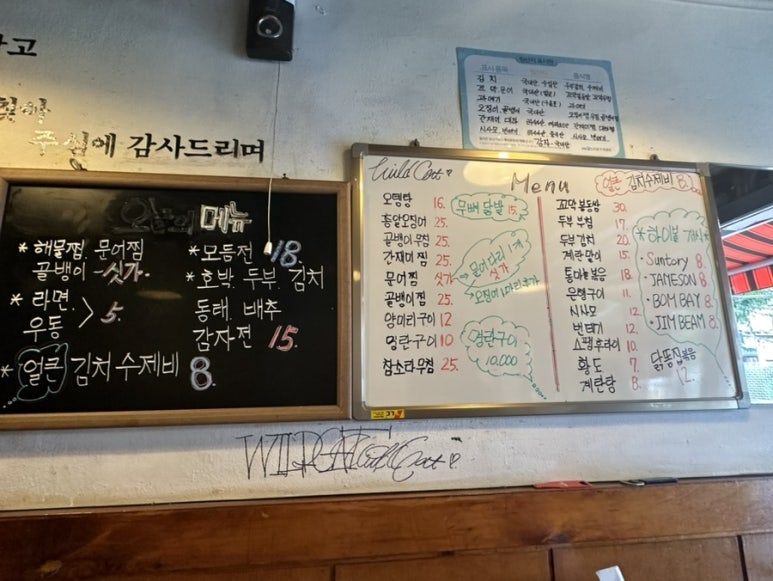 고
주심에 감사드리며
오늘의 메뉴
* 해물찜. 문어찜
골뱅이 -싯가-
* 라면.
우동 > 5.
* 얼큰 김치수제비 8.
* 모듬전 18.
* 호박. 두부. 김치
동태. 배추
감자전 15.
표시 품목
김치 국내산
Wild Cat
Menu
얼큰 김치수제비 8.
오뎅탕 16.
통알오징어 25.
골뱅이무침 25.
간재미찜 25.
문어찜 싯가
골뱅이찜 25.
양미리구이 12
명란구이 10
참소라무침 25.
무뼈닭발 15.
문어다리 1개
싯가
오징어 1마리 추가
명란구이
10,000
꼬막봉동방 30.
두부부침 17.
두부김치 20.
계란말이 15.
통마늘볶음 18.
은행구이 11.
시사모 12.
번데기 12.
쇼팽후라이 10.
황도 7.
계란탕 8.
* 하이볼 개시 *
· Suntory 8.
· JAMESON 8.
· BOMBAY 8.
· JIM BEAM 8.
닭똥집볶음
12.
Wild Cat